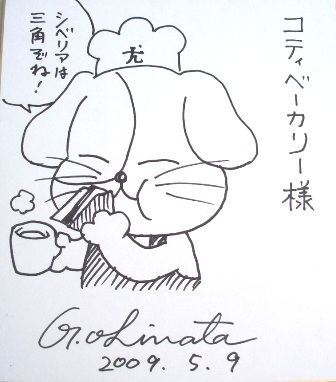 コティベーカリー様
シベリアは
三角だね!
G.Ohinata
2009. 5. 9